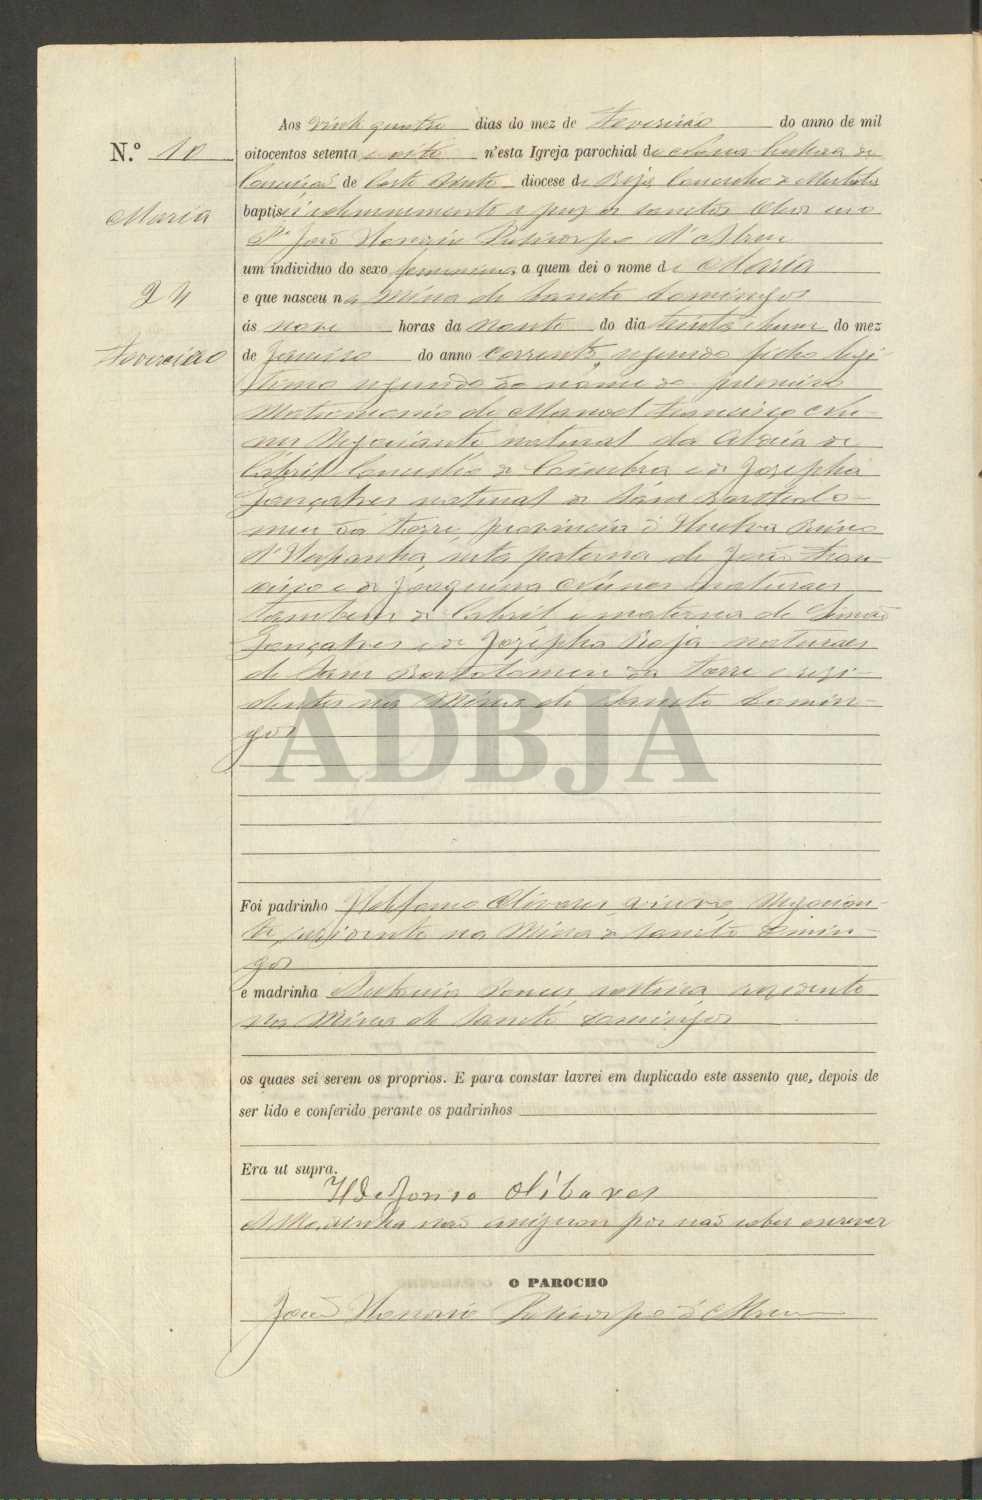 Aos vinte quatro dias do mez de Fevereiro do anno de mil
N.º 10
oitocentos setenta e oito n'esta Igreja parochial de Nossa Senhora da
Conceição de Corte Pinto diocese de Beja Concelho de Mertola
Maria
baptisei solemnemente e puz os sanctos Oleos eu o
P.e João Honorio d'Abreu
um individuo do sexo femenino, a quem dei o nome de Maria
24
e que nasceu na Mina de Sancto Domingos
ás nove horas da noute do dia trinta e hum do mez
Fevereiro
de Janeiro do anno corrente, segundo filho legi-
timo segundo do nome do primeiro
Matrimonio de Manoel Francisco Nu-
nes Negociante natural da Aldeia de
Cabril Concelho de Coimbra e de Josepha
Gonçalves natural de Sam Bartholo-
meu da Torre, provincia d'Huelva Reino
d'Hespanha, neta paterna de João Fran-
cisco e de Joaquina Nunes naturaes
tambem de Cabril e materna de Simão
Gonçalves e de Josepha Roja naturaes
de Sam Bartolomeu da Torre e resi-
dentes na Mina de Sancto Domin-
gos
ADBJA
Foi padrinho Ildefonso Olivares viuvo, Negocian-
te, residente na Mina de Sancto Domin-
gos
e madrinha Antonia solteira, residente
na Mina de Sancto Domingos
os quaes sei serem os proprios. E para constar lavrei em duplicado este assento que, depois de
ser lido e conferido perante os padrinhos
Era ut supra.
Ildefonso Olibares
A Madrinha não assignou por não saber escrever
O PAROCHO
João Honorio d'Abreu